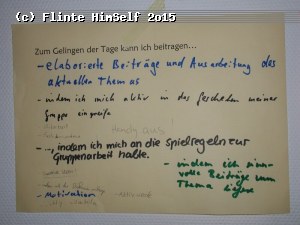 (c) Flinte HimSelf 2015
Zum Gelingen der Tage kann ich beitragen...
- elaborierte Beiträge und Ausarbeitung des
aktuellen Themas
- indem ich mich aktiv in das Geschehen meiner
Gruppe eingreife
Handy aus!
- ..., indem ich mich an die Spielregeln zur
Gruppenarbeit halte.
- indem ich sinn-
volle Beiträge zum
Thema
- Motivation